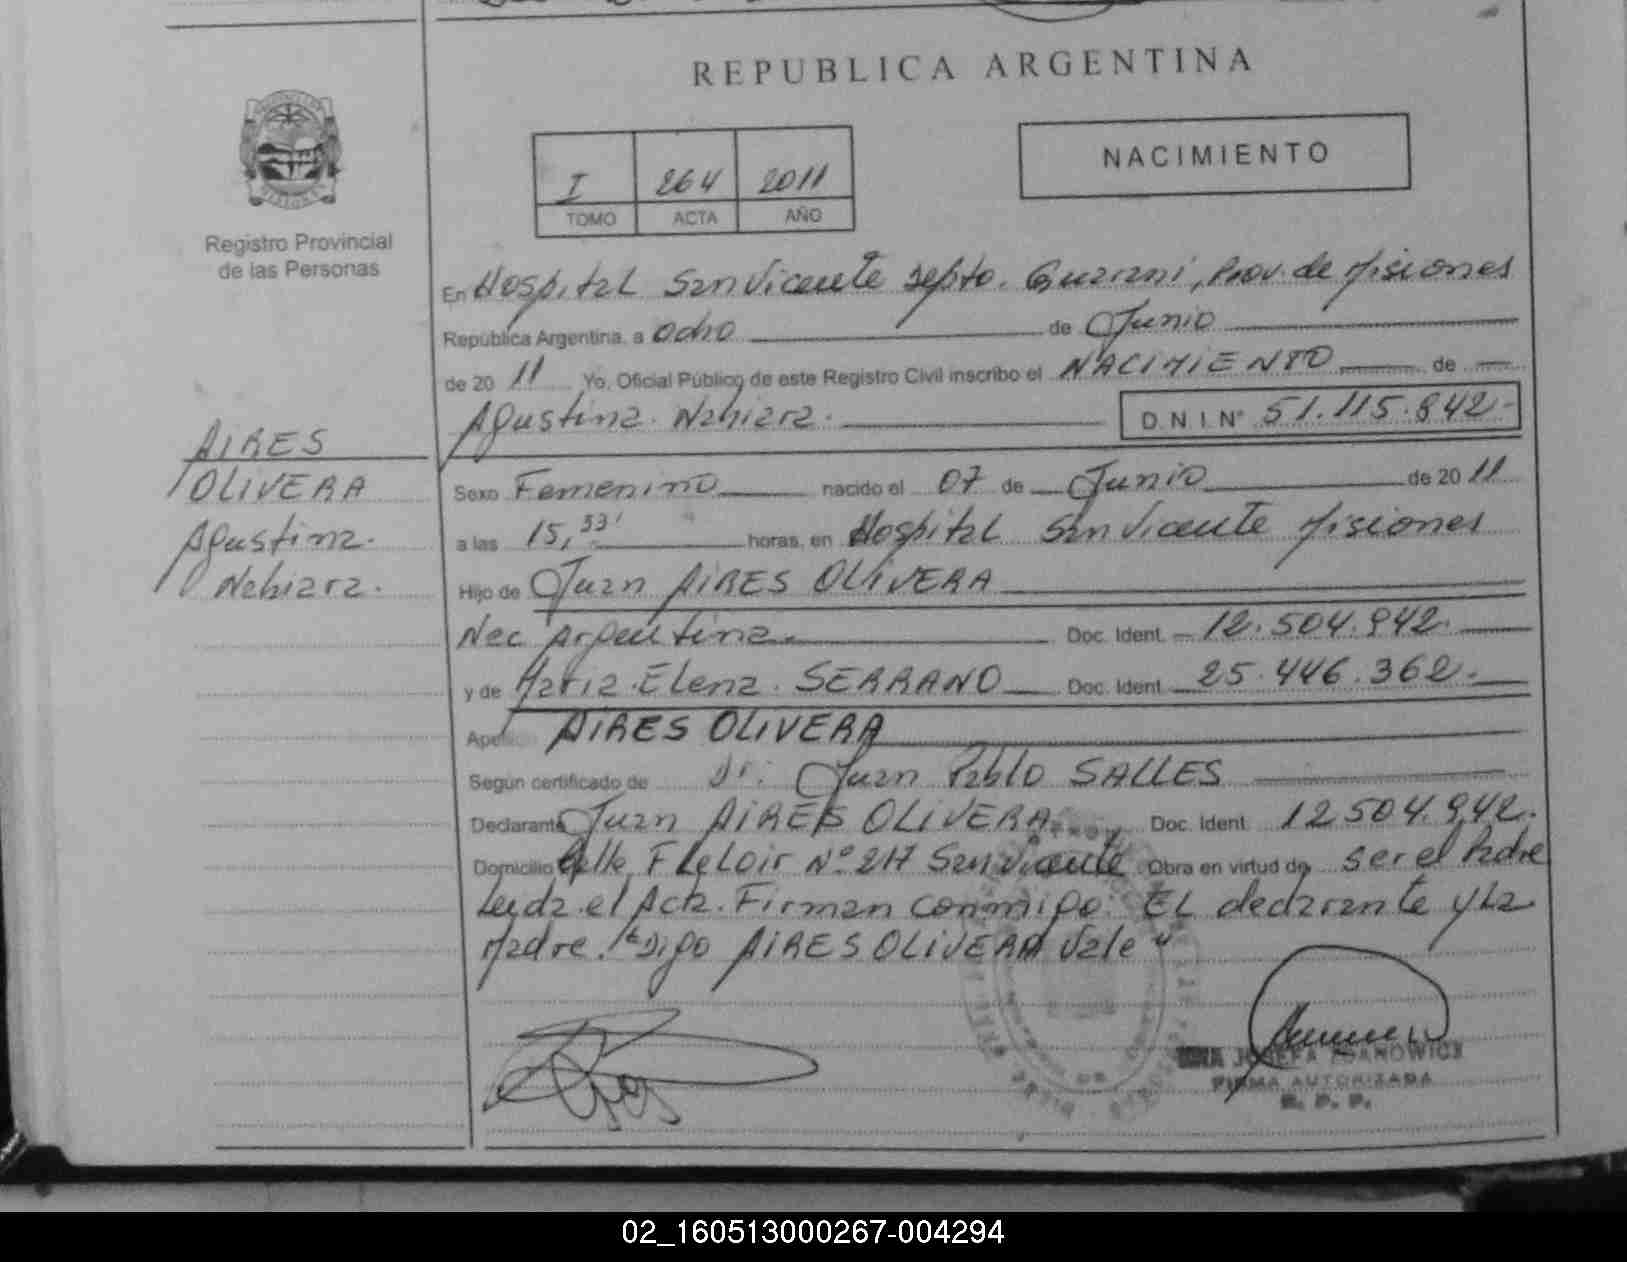 REPUBLICA ARGENTINA
Registro Provincial
de las Personas
I 264 2011
TOMO ACTA AÑO
NACIMIENTO
En Hospital San Vicente Depto. Guarani, Prov. de Misiones
República Argentina, a Ocho de Junio
de 20 11 Yo, Oficial Público de este Registro Civil inscribo el NACIMIENTO de
Agustina Nahiara. D.N.I. Nº 51.115.842-
AIRES
OLIVERA
Agustina.
Nahiara.
Sexo Femenino nacido el 07 de Junio de 20 11
a las 15,33' horas, en Hospital San Vicente Misiones
Hijo de Juan AIRES OLIVERA
Nac Argentina. Doc. Ident. 12.504.942.
y de Maria Elena SERRANO Doc. Ident. 25.446.362.
AIRES OLIVERA
Según certificado de Dr. Juan Pablo SALLES
Declarante Juan AIRES OLIVERA Doc. Ident. 12504.942.
Domicilio Calle F Leloir Nº 217 San Vicente Obra en virtud de ser el Padre
Leida el Acta. Firman conmigo EL declarante y La
Madre. "Digo AIRES OLIVERA Vale"
FIRMA AUTORIZADA
R. P. P.
02_160513000267-004294